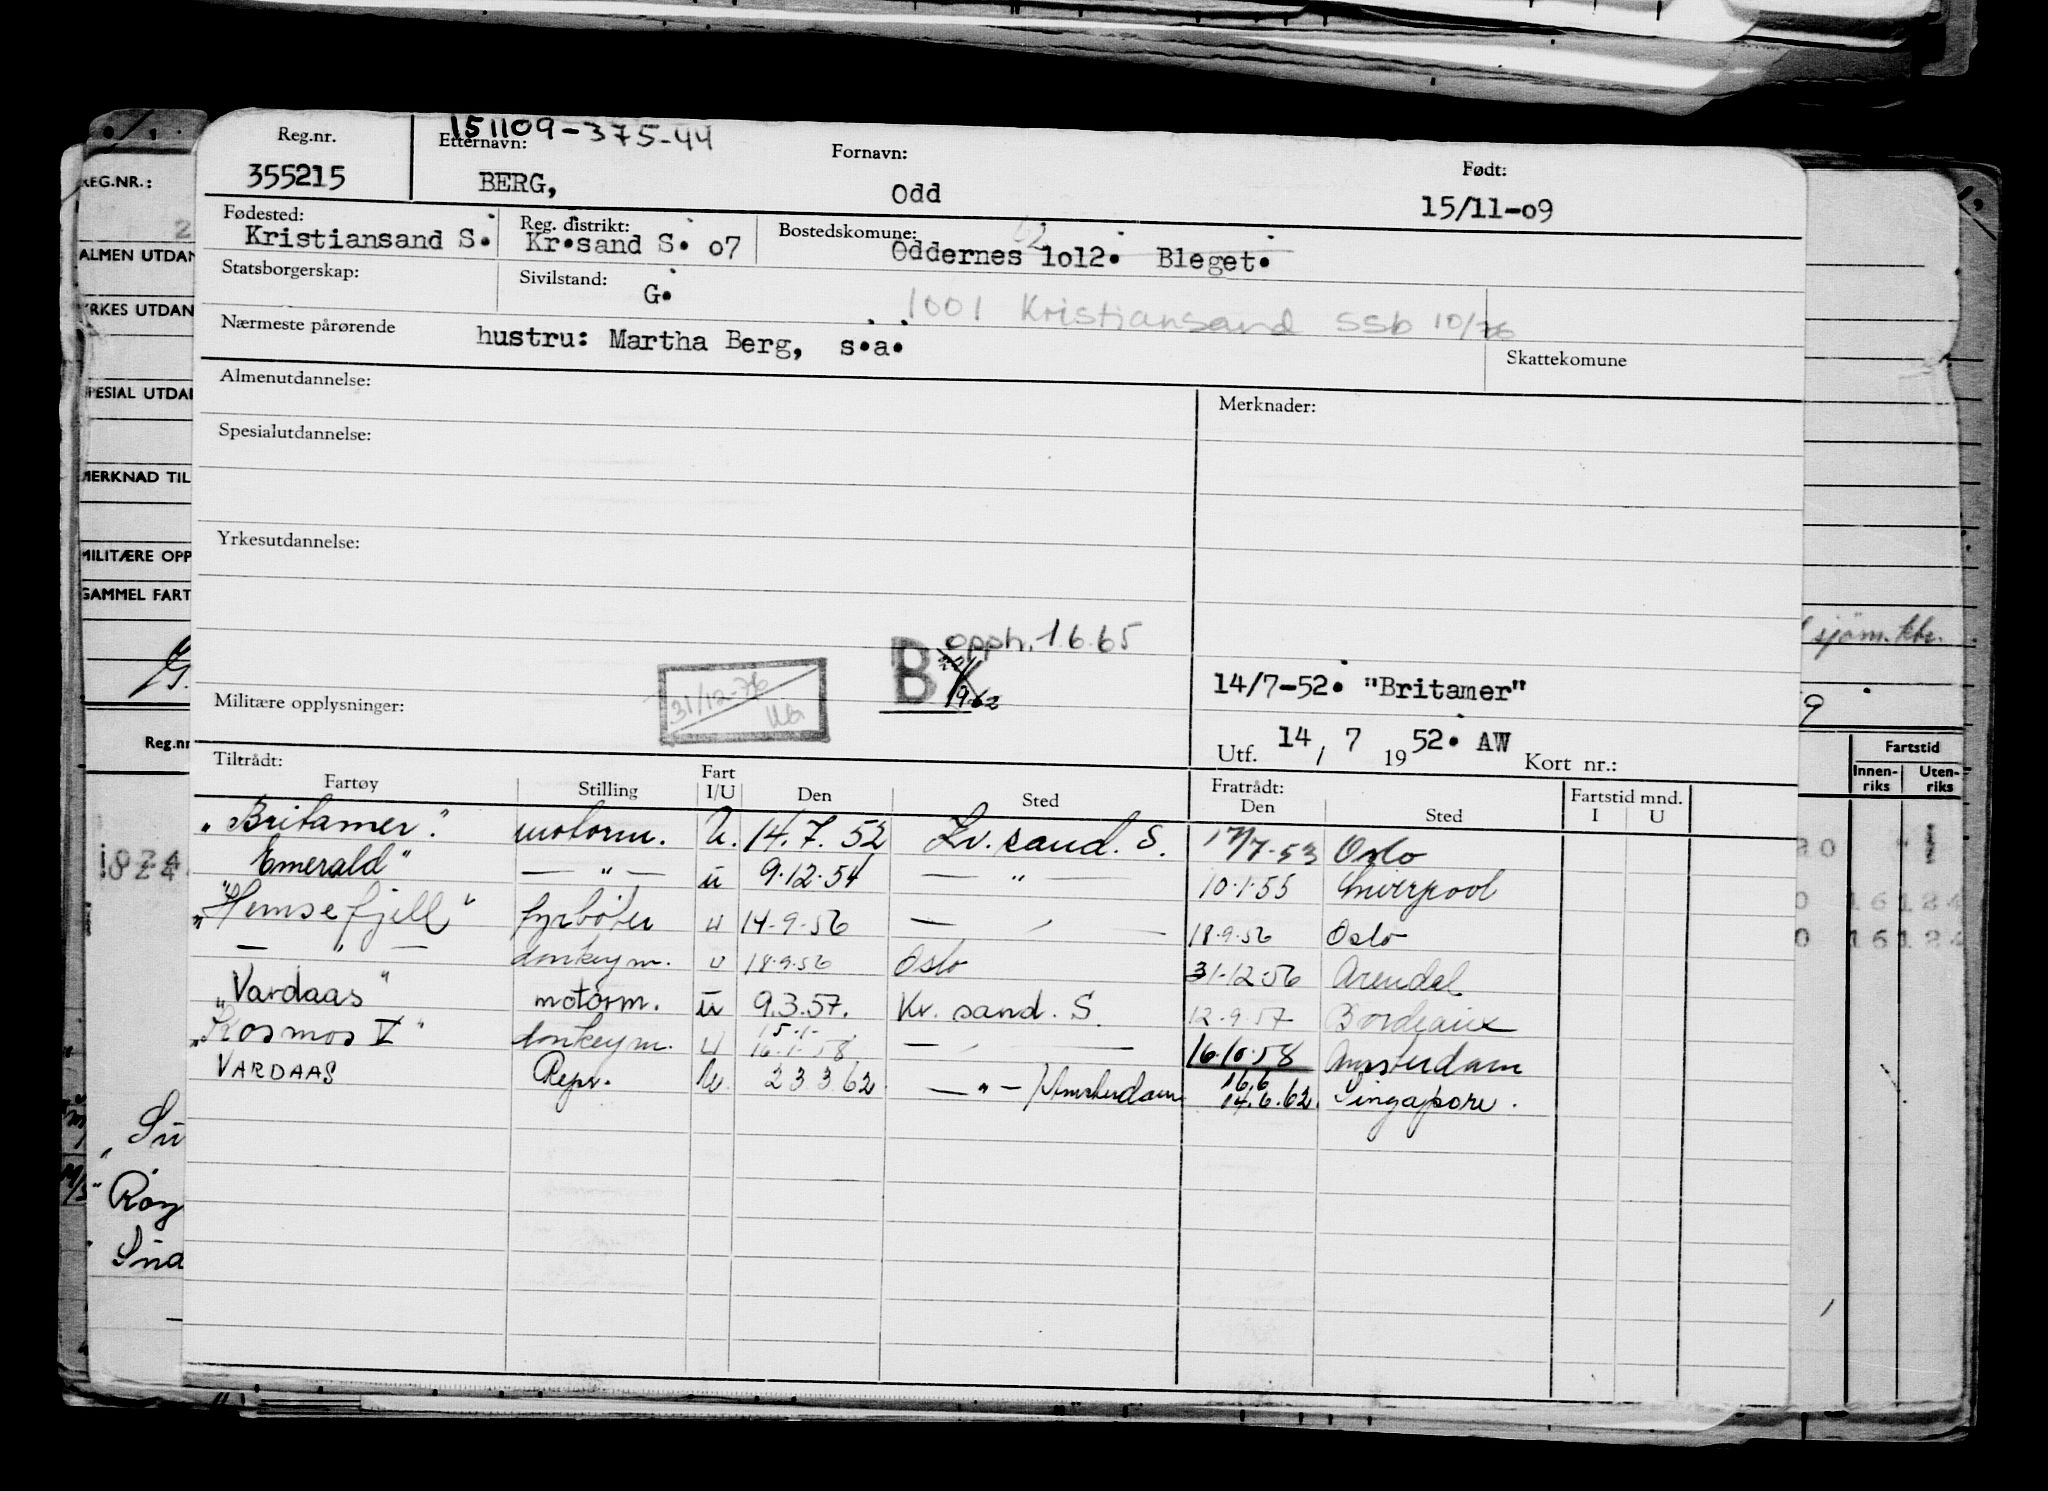 151109-375-44
Reg.nr. Etternavn: Fornavn: Født:
355215 BERG, Odd 15/11-o9
Fødested: Reg. distrikt: Bostedskomune:
Kristiansand S. Kr.sand S. o7 Oddernes 1o12. Bleget.
Statsborgerskap: Sivilstand: G.
1001 Kristiansand SSb 10/76
Nærmeste pårørende hustru: Martha Berg, s.a. Skattekomune
Almenutdannelse: Merknader:
Spesialutdannelse:
Yrkesutdannelse:
opph. 1.6.65
B 1962
31/12-76
14/7-52. "Britamer"
Militære opplysninger:
Utf. 14 / 7 1952. AW Kort nr.:
Tiltrådt: Fratrådt:
Fartøy Stilling Fart I/U Den Sted Den Sted Fartstid mnd. I U
"Britamer". motorm. U. 14.7.52 Kv. sand. S. 17/7.53 Oslo
Emerald" — " — u 9.12.54 — " — 10.1.55 Liverpool
"Hemsefjell" fyrbøter u 14-9-56 — " — 18.9.56 Oslo
— " — donkeym. u 18.9.56 Oslo 31.12.56 Arendal
"Vardaas" motorm. u 9.3.57. Kv. sand. S. 12.9.57 Bordeaux
"Kosmos V" donkeym. u 16.1.58 15.1. — " — 16.10.58 Amsterdam
VARDAAS Repr. U. 23 3.62. — " — /Amsterdam 14.6.62. 16.6 Singapore.
REG.NR.:
ALMEN UTDAN
YRKES UTDAN
SPESIAL UTDAN
MERKNAD TIL
MILITÆRE OPP
GAMMEL FART
Reg.nr
1824
Su
Roy
sjøm.
9
Fartstid
Innen-riks Uten-riks
16124
16124